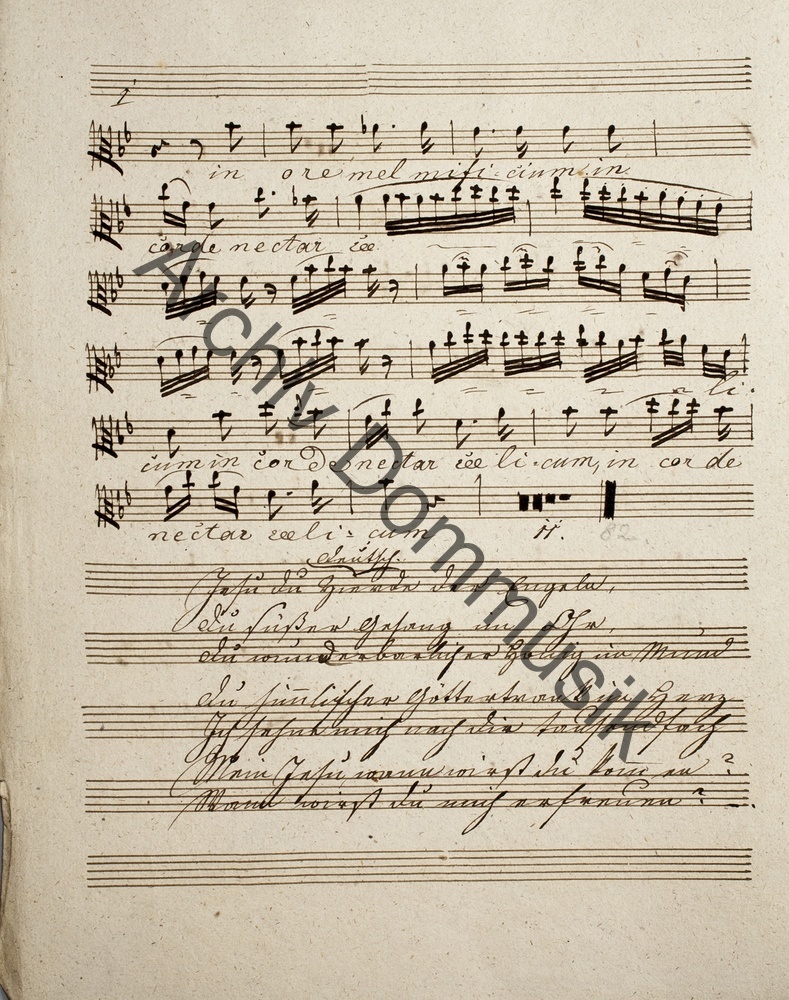 1
in ore mel mifi = cium in
corde nectar cœ
li =
cum in corde nectar cœli = cum, in corde
nectar cœli = cum
11.
82.
deutsch.
Jesu du Zierde der Engeln,
du süßer Gesang im Ohr,
du wunderbarlicher Honig im Mund
du himlischer Göttertrank im Herz
Ich sehne mich nach dir tausendfach
Mein Jesu wann wirst du komen?
Wann wirst du mich erfreuen? —.
Archiv Dommusik